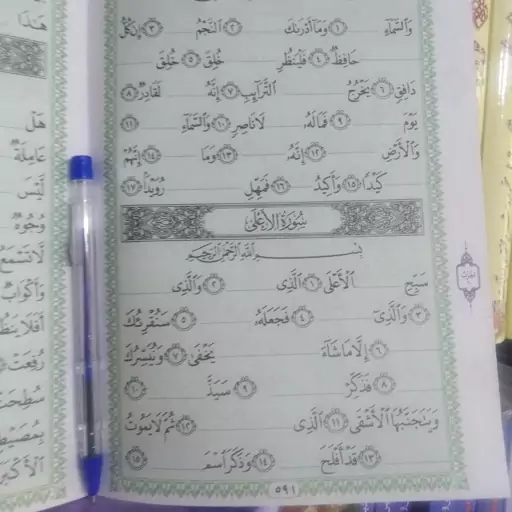 وَالسَّمَآءِ ١ وَمَآ أَدْرَىٰكَ ٢ ٱلنَّجْمُ ٣ إِن كُلُّ
حَافِظٌ ٤ فَلْيَنظُرِ خُلِقَ ٥ خُلِقَ
دَافِقٍ ٦ يَخْرُجُ ٱلتَّرَآئِبِ ٧ إِنَّهُۥ لَقَادِرٌ ٨
يَوْمَ ٩ فَمَا لَهُۥ لَا نَاصِرٍ ١٠ وَٱلسَّمَآءِ ١١
وَٱلْأَرْضِ ١٢ إِنَّهُۥ ١٣ وَمَا ١٤ إِنَّهُمْ
كَيْدًا ١٥ وَأَكِيدُ ١٦ فَمَهِّلِ رُوَيْدًۢا ١٧
سُورَةُ الأَعْلَى
بِسْمِ ٱللَّهِ ٱلرَّحْمَٰنِ ٱلرَّحِيمِ
سَبِّحِ ٱلْأَعْلَى ١ ٱلَّذِى ٢ وَٱلَّذِى
٣ وَٱلَّذِىٓ ٤ فَجَعَلَهُۥ ٥ سَنُقْرِئُكَ
٦ إِلَّا مَا شَآءَ يَخْفَىٰ ٧ وَنُيَسِّرُكَ
٨ فَذَكِّرْ ٩ سَيَذَّ ١٠
وَيَتَجَنَّبُهَا ٱلْأَشْقَى ١١ ٱلَّذِى ١٢ ثُمَّ لَا يَمُوتُ
١٣ قَدْ أَفْلَحَ ١٤ وَذَكَرَ ٱسْمَ ١٥
٥٩١
هَٰذَا
هَلْ
عَامِلَةٌ
لَّيْسَ
وُجُوهٌ
لَّا تَسْمَعُ
وَأَكْوَابٌ
أَفَلَا يَنظُ
رُفِعَتْ
سُطِحَتْ
بِمُصَيْطِ
ٱلْأَكْبَرَ